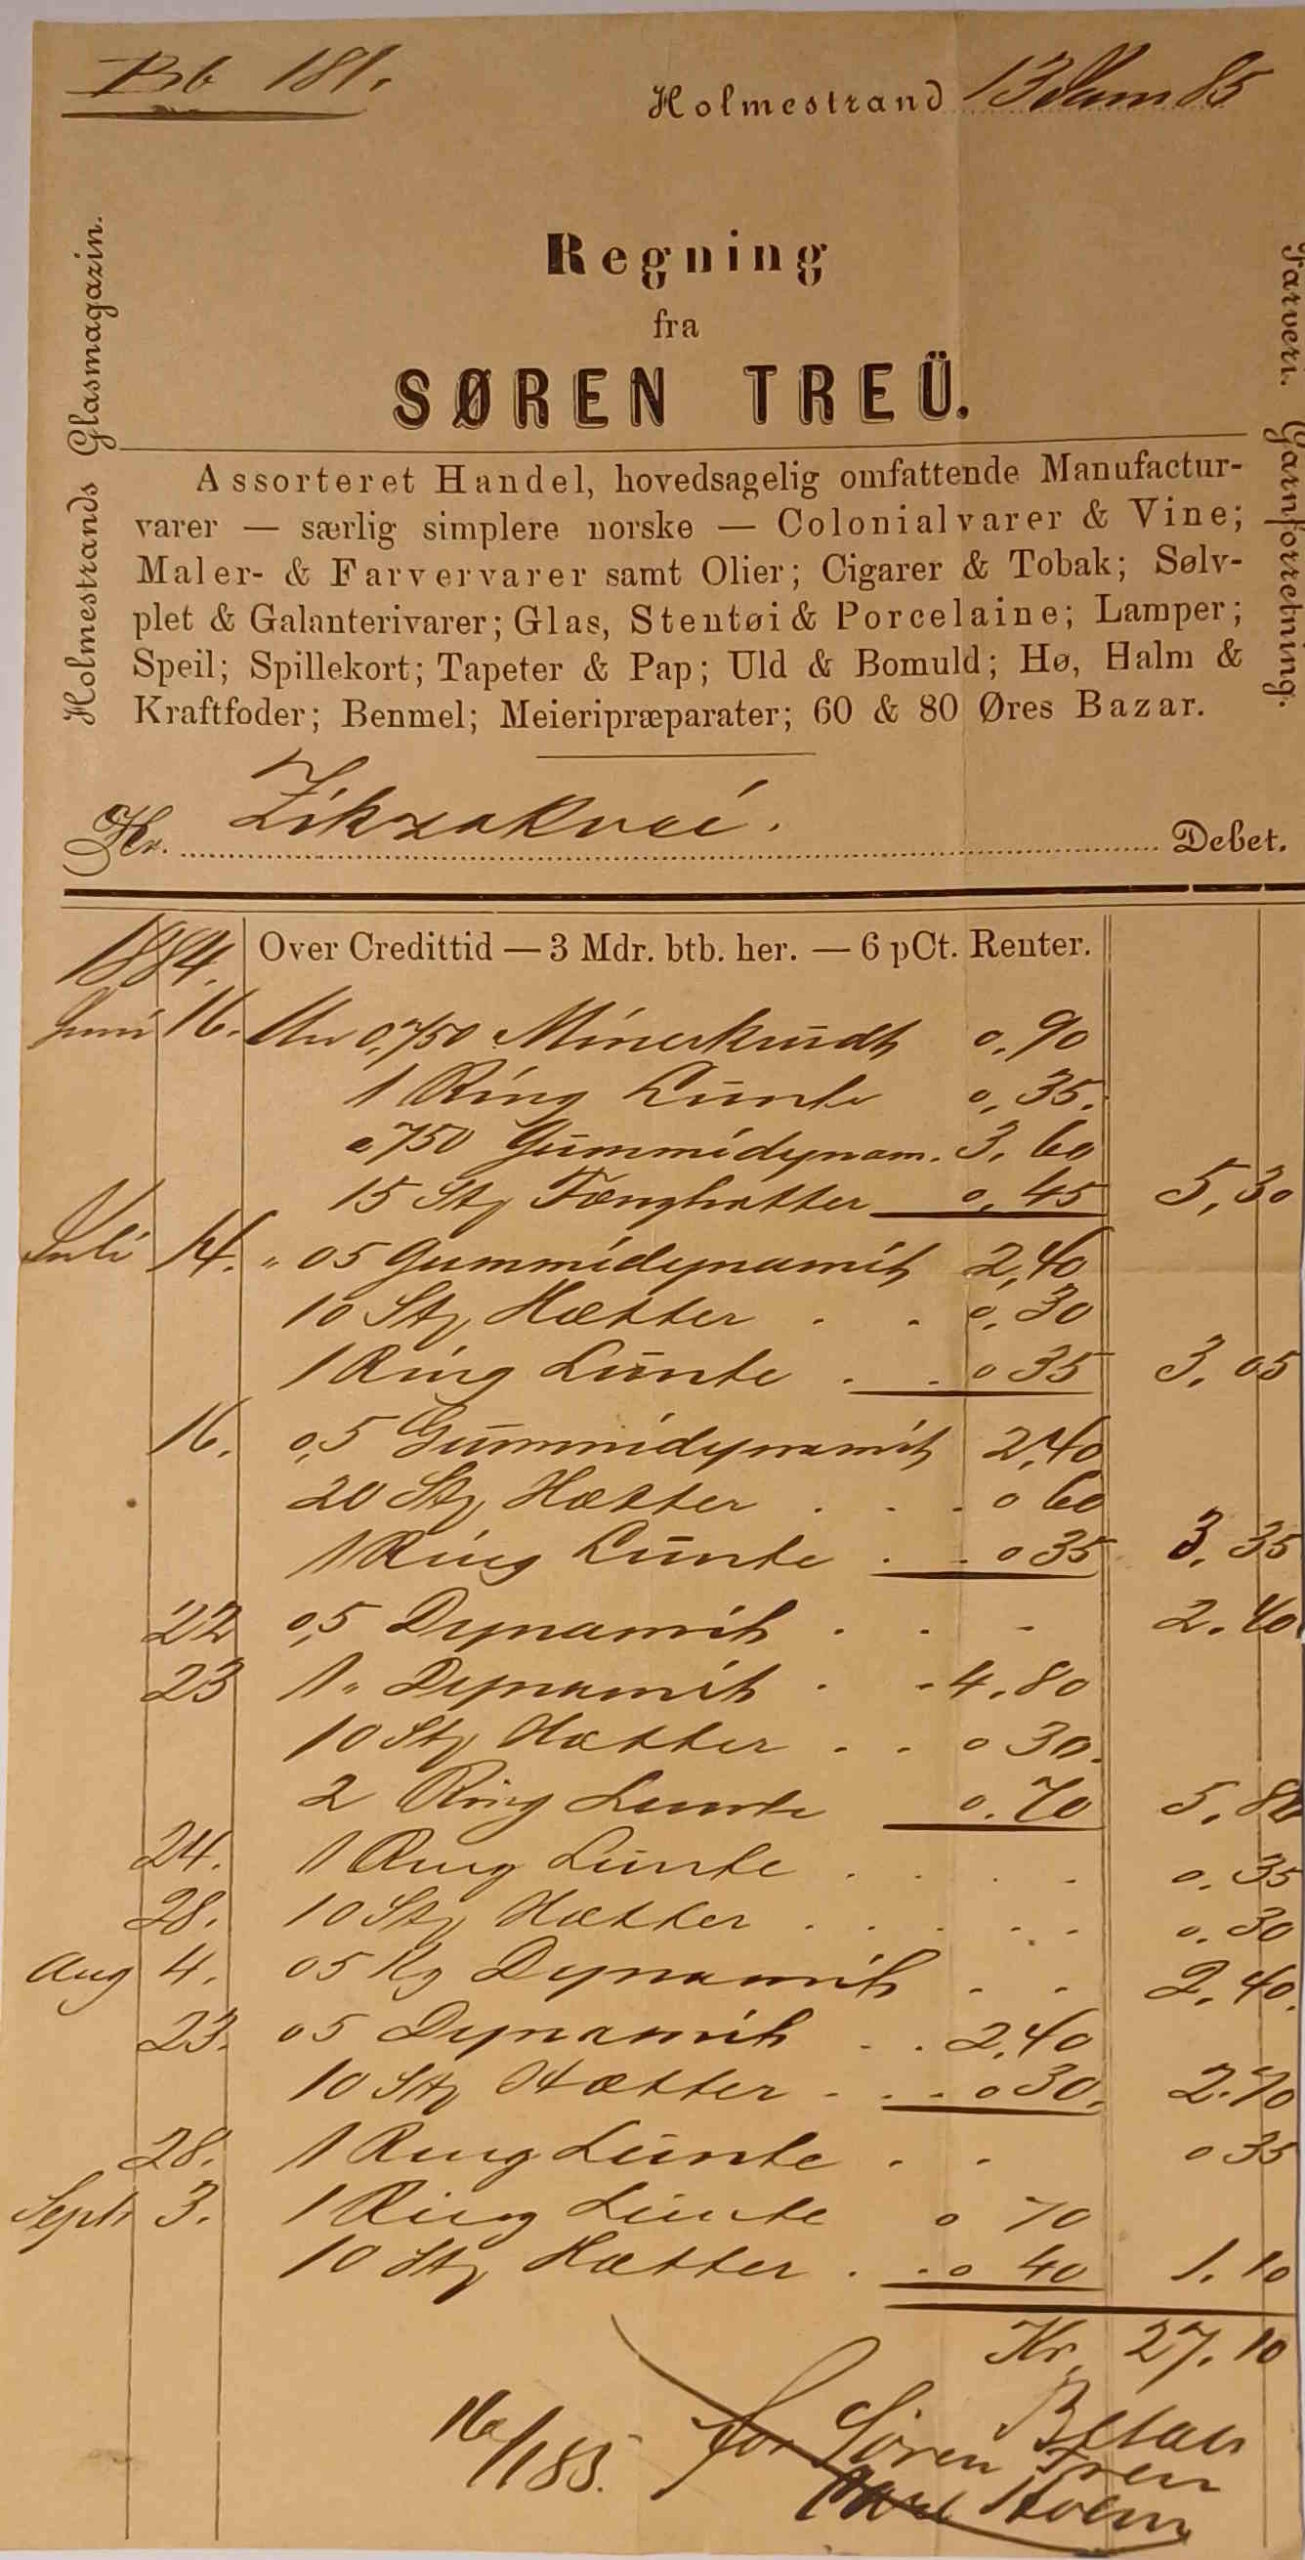 Bb 181.
Holmestrand 13 Jan 85
Holmestrands Glasmagazin.
Farveri. Garnforretning.
Regning
fra
SØREN TREÜ.
Assorteret Handel, hovedsagelig omfattende Manufactur-
varer — særlig simplere norske — Colonialvarer & Vine;
Maler- & Farvervarer samt Olier; Cigarer & Tobak; Sølv-
plet & Galanterivarer; Glas, Stentøi & Porcelaine; Lamper;
Speil; Spillekort; Tapeter & Pap; Uld & Bomuld; Hø, Halm &
Kraftfoder; Benmel; Meieripræparater; 60 & 80 Øres Bazar.
Hr. Zikzakvei. Debet.
1884. Over Credittid — 3 Mdr. btb. her. — 6 pCt. Renter.
Juni 16. 0,750 Minerkrudt 0,90
1 Ring Lunte 0,35.
0750 Gummidynam. 3,60
15 Stk Fænghætter 0,45 5,30
Juli 14. " 05 Gummidynamit 2,40
10 Stk Hætter . . 0,30
1 Ring Lunte . . 0 35 3,05
16. 0,5 Gummidynamit 2,40
20 Stk Hætter . . . 0 60
1 Ring Lunte . . 0 35 3,35
22 0,5 Dynamit . . . 2.40
23 1 " Dynamit . . 4.80
10 Stk Hætter . . 0 30.
2 Ring Lunte 0.70 5.80
24. 1 Ring Lunte . . . . 0.35
28. 10 Stk Hætter . . . . . 0.30
Aug 4. 05 Kg Dynamit . . 2,40.
23. 05 Dynamit . . 2,40
10 Stk Hætter . . . 0 30. 2.70
28. 1 Ring Lunte . . 0 35
Septr 3. 1 Ring Lunte 0 70
10 Stk Hætter . . . 0 40 1.10
Kr. 27.10
Betalt
16/1 85. for Søren Treu
Holm